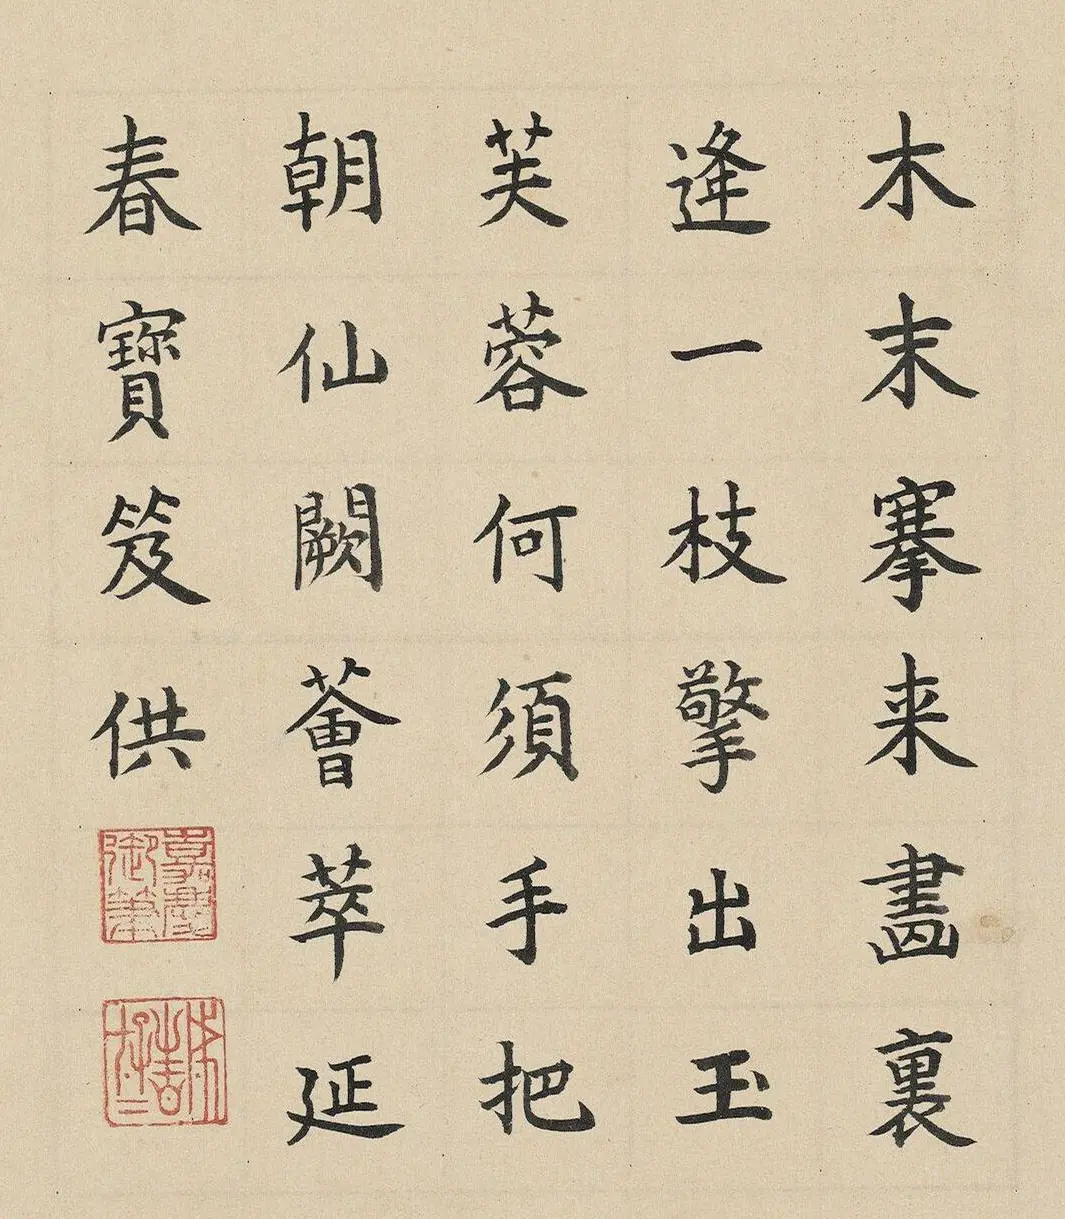 木末搴来畫裏
逢一枝擎出玉
芙蓉何須手把
朝仙闕薈萃延
春寶笈供
嘉慶
御筆